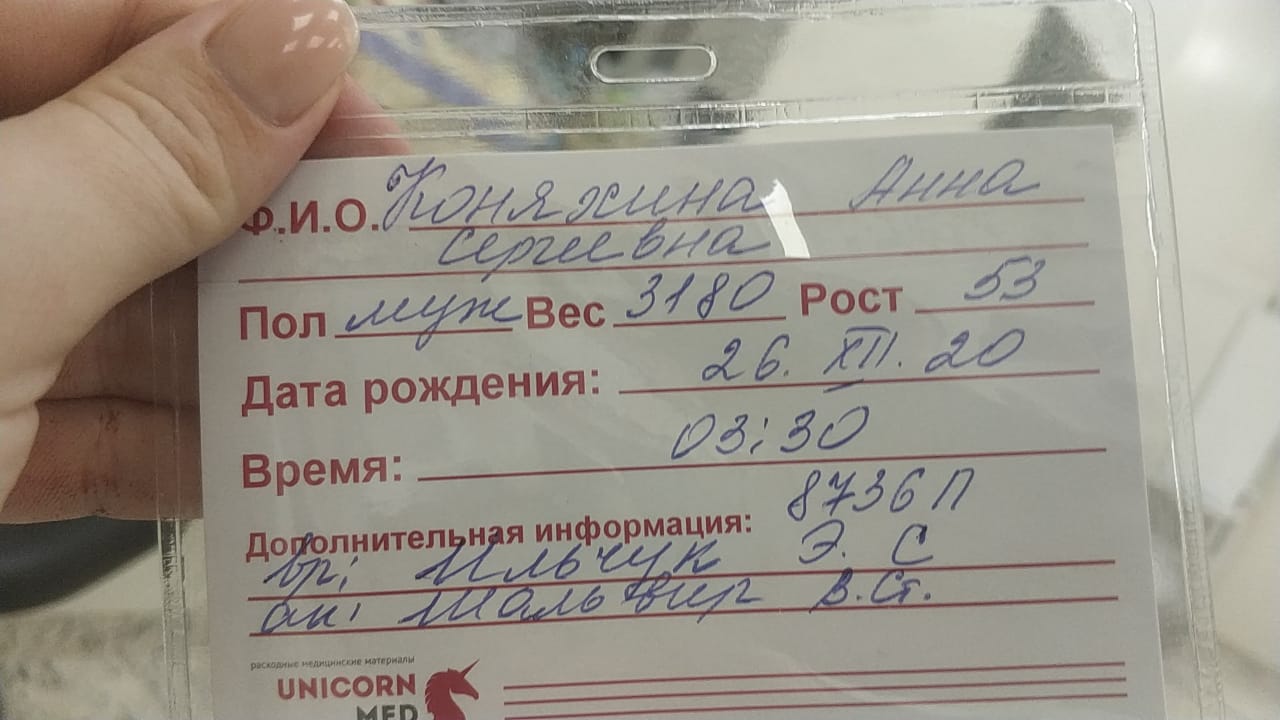 Ф.И.О. Коняхина Анна
Сергеевна
Пол муж Вес 3180 Рост 53
Дата рождения: 26. XII. 20
Время: 03:30
Дополнительная информация: 8736П
вр: Ильчук Э. С
ак: В.Ст.
расходные медицинские материалы
UNICORN
MED